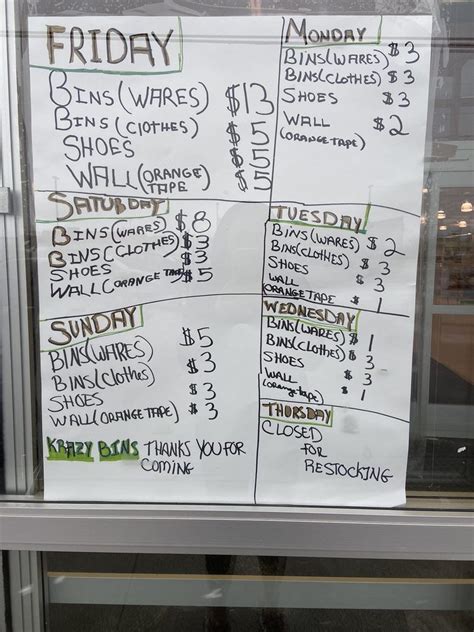 FRIDAY
BINS(WARES) $13
BINS(CLOTHES) $5
SHOES $5
WALL(ORANGE TAPE) $5
SATURDAY
BINS(WARES) $8
BINS(CLOTHES) $3
SHOES $3
WALL(ORANGE TAPE) $5
SUNDAY
BINS(WARES) $5
BINS(CLOTHES) $3
SHOES $3
WALL(ORANGE TAPE) $3
KRAZY BINS THANKS YOU FOR
COMING
MONDAY
BINS(WARES) $3
BINS(CLOTHES) $3
SHOES $3
WALL $2
(ORANGE TAPE)
TUESDAY
BINS(WARES) $2
BINS(CLOTHES) $3
SHOES $3
WALL
ORANGE TAPE $1
WEDNESDAY
BINS(WARES) $1
BINS(CLOTHES) $3
SHOES $3
WALL
(ORANGE TAPE) $1
THURSDAY
CLOSED
FOR
RESTOCKING